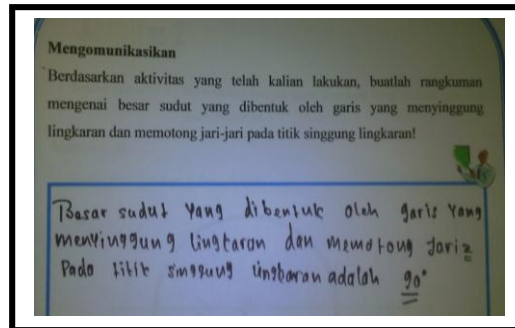 Mengomunikasikan
Berdasarkan aktivitas yang telah kalian lakukan, buatlah rangkuman
mengenai besar sudut yang dibentuk oleh garis yang menyinggung
lingkaran dan memotong jari-jari pada titik singgung lingkaran!
Besar sudut yang dibentuk oleh garis yang
menyinggung lingkaran dan memotong jari2
Pada titik singgung lingkaran adalah 90°